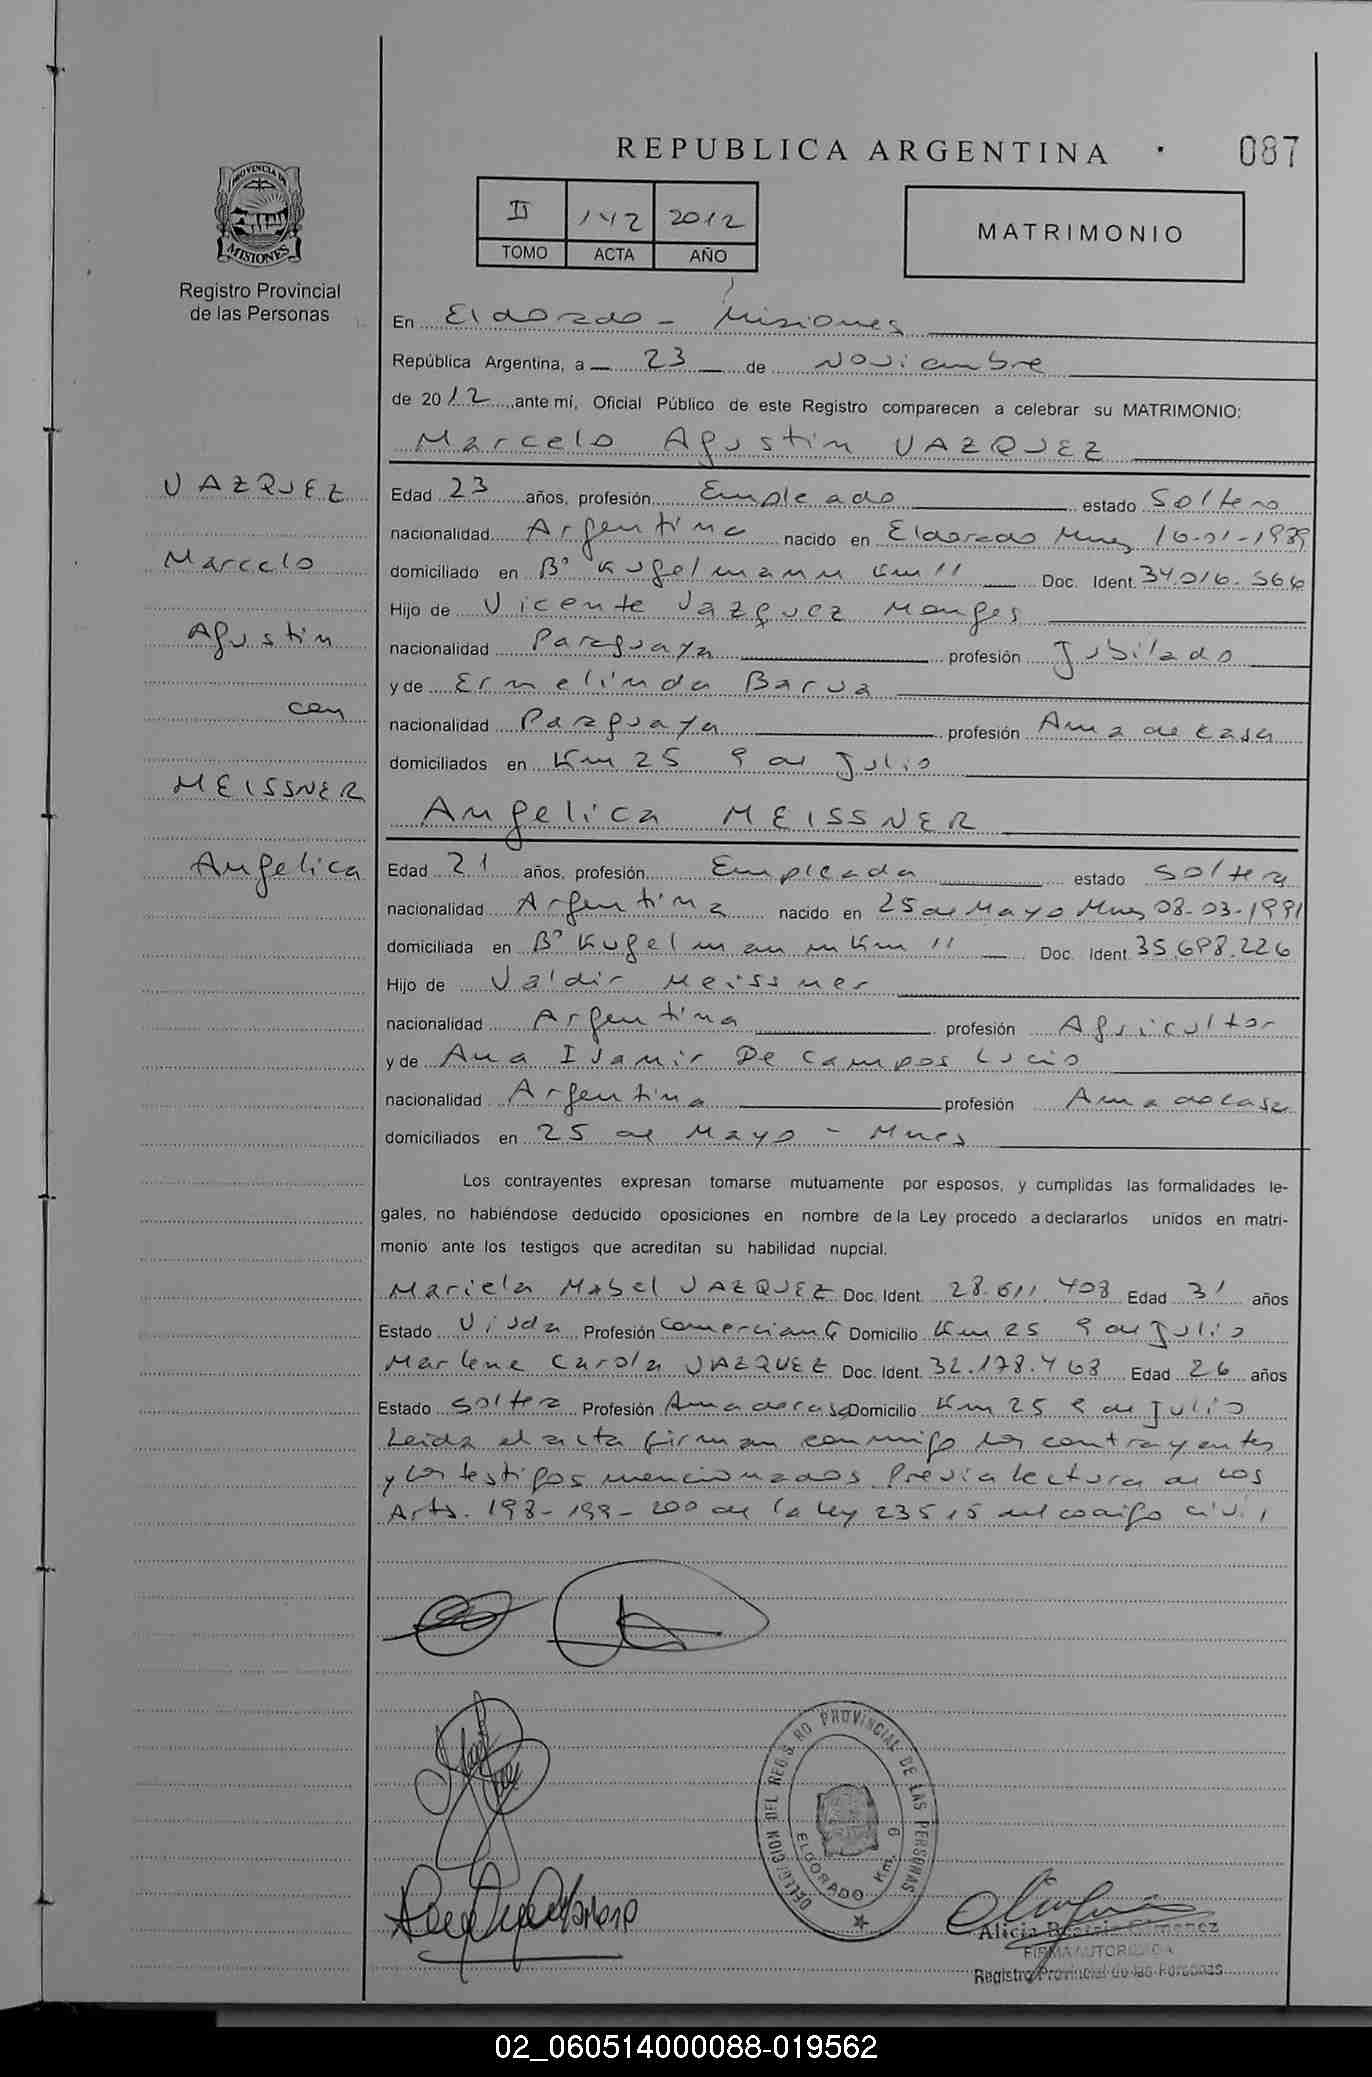 REPUBLICA ARGENTINA
087
PROVINCIA DE
MISIONES
Registro Provincial
de las Personas
II 142 2012
TOMO ACTA AÑO
MATRIMONIO
En Eldorado - Misiones
República Argentina, a 23 de Noviembre
de 2012 ante mí, Oficial Público de este Registro comparecen a celebrar su MATRIMONIO:
Marcelo Agustin VAZQUEZ
VAZQUEZ
Marcelo
Agustin
con
MEISSNER
Angelica
Edad 23 años, profesión Empleado estado Soltero
nacionalidad Argentina nacido en Eldorado Mnes 16-01-1989
domiciliado en Bº Kugelmann Km 11 Doc. Ident. 34.016.566
Hijo de Vicente Vazquez Monges
nacionalidad Paraguaya profesión Jubilado
y de Ermelinda Barua
nacionalidad Paraguaya profesión Ama de casa
domiciliados en Km 25 9 de Julio
Angelica MEISSNER
Edad 21 años, profesión Empleada estado Soltera
nacionalidad Argentina nacido en 25 de Mayo Mnes 08-03-1991
domiciliada en Bº Kugelmann Km 11 Doc. Ident. 35.698.226
Hijo de Valdir Meissner
nacionalidad Argentina profesión Agricultor
y de Ana Ivanir De Campos Lucio
nacionalidad Argentina profesión Ama de casa
domiciliados en 25 de Mayo - Mnes
Los contrayentes expresan tomarse mutuamente por esposos, y cumplidas las formalidades le-
gales, no habiéndose deducido oposiciones en nombre de la Ley procedo a declararlos unidos en matri-
monio ante los testigos que acreditan su habilidad nupcial.
Mariela Mabel VAZQUEZ Doc. Ident. 28.611.408 Edad 31 años
Estado Viuda Profesión Comerciante Domicilio Km 25 9 de Julio
Marlene Carola VAZQUEZ Doc. Ident. 32.178.468 Edad 26 años
Estado Soltera Profesión Ama de casa Domicilio Km 25 9 de Julio
Leida el acta firman conmigo los contrayentes
y los testigos mencionados Previa lectura de los
Arts. 198-199-200 de la ley 23515 del codigo civil
DELEGACION DEL REGISTRO PROVINCIAL DE LAS PERSONAS
ELDORADO Km. 6
Alicia Beatriz Gimenez
FIRMA AUTORIZADA
Registro Provincial de las Personas
02_060514000088-019562